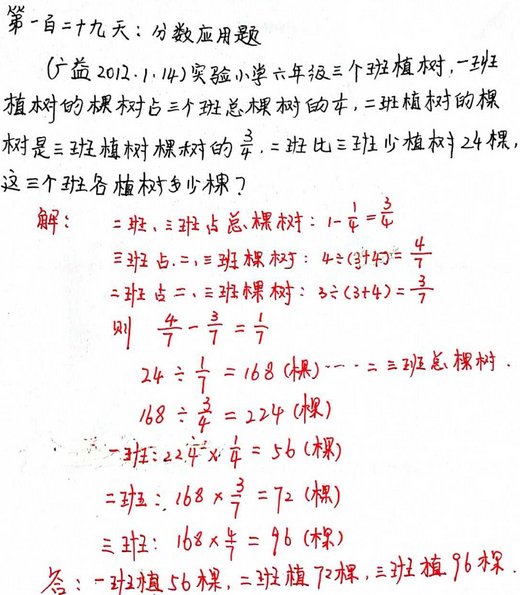 第一百二十九天：分数应用题
(广益2012.1.14)实验小学六年级三个班植树,一班
植树的棵树占三个班总棵树的¼,二班植树的棵
树是三班植树棵树的3/4.二班比三班少植树24棵,
这三个班各植树多少棵？
解： 二班、三班占总棵树：1-1/4=3/4
三班占二、三班棵树：4÷(3+4)=4/7
二班占二、三班棵树：3÷(3+4)=3/7
则 4/7-3/7=1/7
24÷1/7=168(棵)····二三班总棵树.
168÷3/4=224(棵)
一班:224×1/4=56(棵)
二班：168×3/7=72(棵)
三班：168×4/7=96(棵)
答：一班植56棵,二班植72棵,三班植96棵.